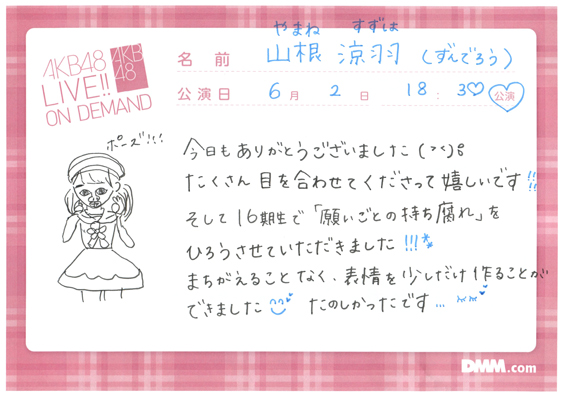 AKB48
LIVE!!
ON DEMAND
AKB
48
やまね すずは
名前 山根 涼羽 (ずんでろう)
公演日 6月 2日 18:30 公演
ポーズ!!!
今日もありがとうございました
たくさん目を合わせてくださって嬉しいです!!!!
そして16期生で「願いごとの持ち腐れ」を
ひろうさせていただきました!!!
まちがえることなく、表情を少しだけ作ることが
できました たのしかったです…
DMM.com